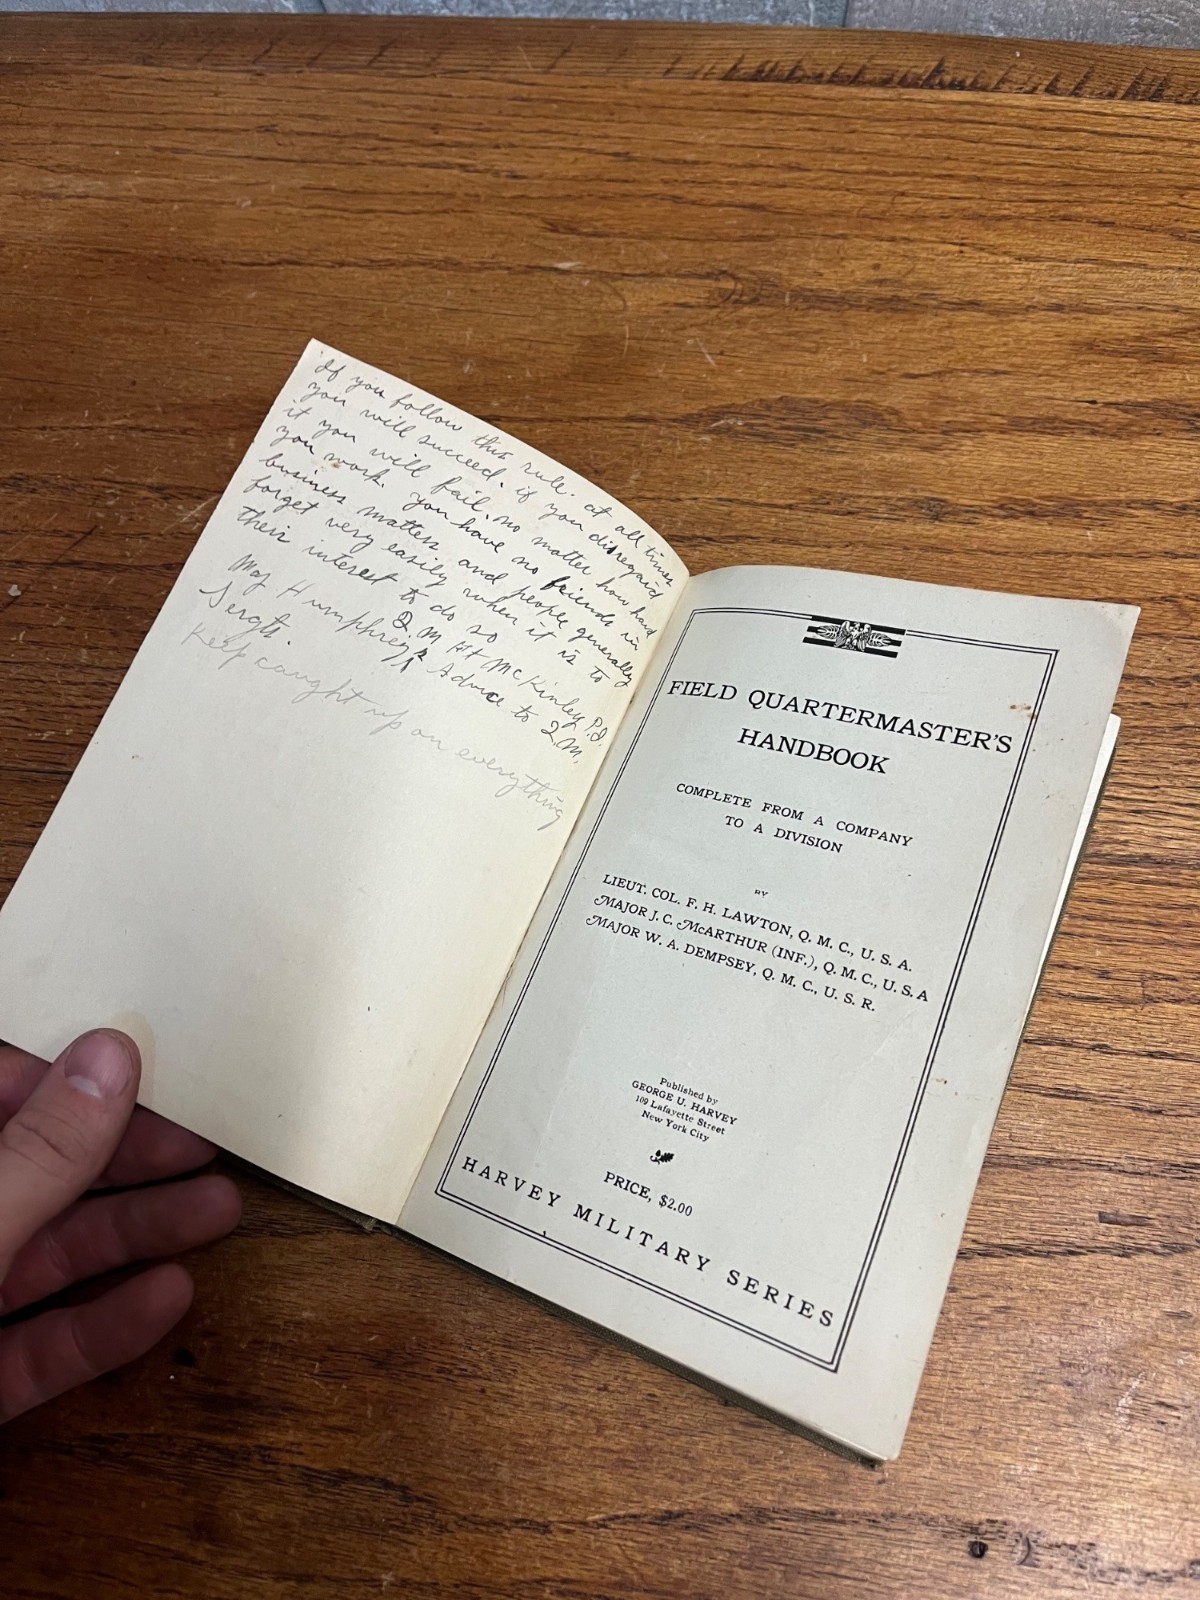 If you follow this rule. at all times
you will succeed. if you disregard
it you will fail. no matter how hard
you work. You have no friends in
business matters and people generally
forget very easily when it is to
their interest to do so
Q.M Ft McKinley P.I.
Maj Humphrey's Advice to Q.M.
Sergts.
Keep caught up on everything
FIELD QUARTERMASTER'S
HANDBOOK
COMPLETE FROM A COMPANY
TO A DIVISION
BY
LIEUT. COL. F. H. LAWTON, Q. M. C., U. S. A.
MAJOR J. C. McARTHUR (INF.), Q. M. C., U. S. A
MAJOR W. A. DEMPSEY, Q. M. C., U. S. R.
Published by
GEORGE U. HARVEY
109 Lafayette Street
New York City
PRICE, $2.00
HARVEY MILITARY SERIES